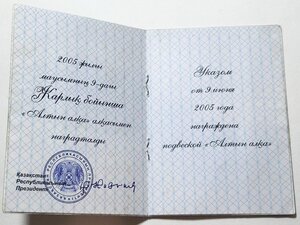 2005 жылғы
маусымның 9-дағы
Жарлық бойынша
«Алтын алқа» алқасымен
наградталды
Қазақстан
Республикасының
Президенті
Указом
от 9 июня
2005 года
награждена
подвеской «Алтын алқа»